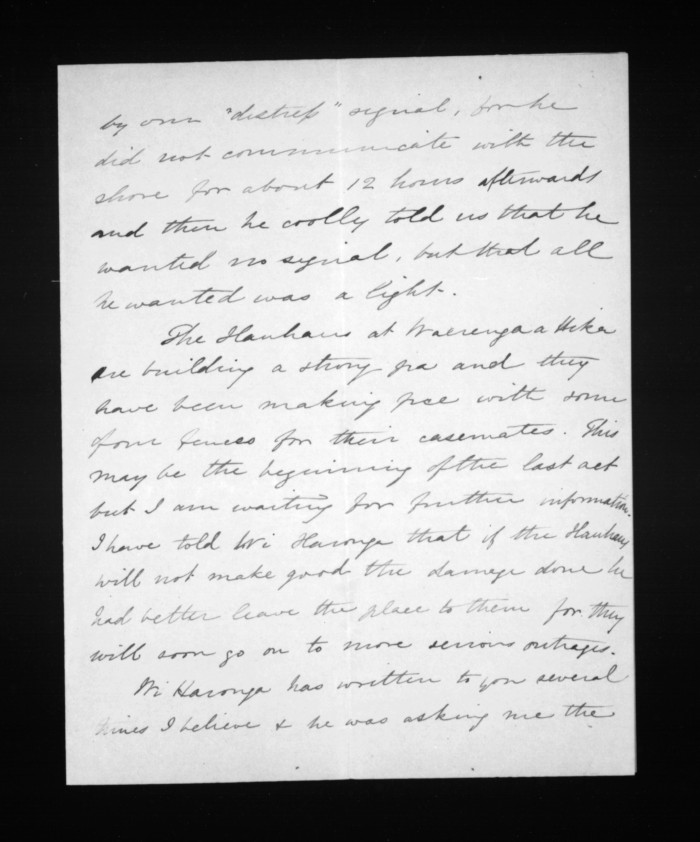 by our "distress" signal, for he
did not communicate with the
shore for about 12 hours afterwards
and then he coolly told us that he
wanted no signal, but that all
he wanted was a light.
The Hauhaus at Waerenga a Hika
are building a strong pa and they
have been making free with some
of our fences for their casemates. This
may be the beginning of the last act
but I am waiting for further information.
I have told Wi Haronga that if the Hauhaus
will not make good the damage done he
had better leave the place to them for they
will soon go on to more serious outrages.
Wi Haronga has written to you several
times I believe & he was asking me the